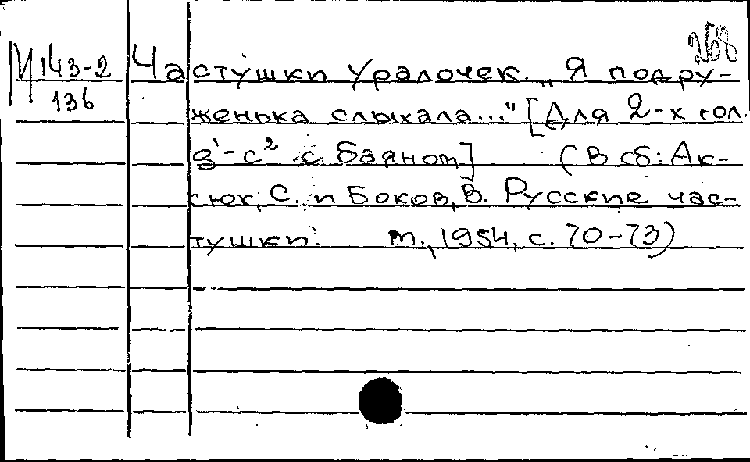 268
М 143-2 Частушки Уралочек. „Я подру-
136 женька слыхала..." [Для 2-х гол.
g¹-c² с баяном] (В сб: Ак-
сюк, С. и Боков, В. Русские час-
тушки. М., 1954, с. 70-73)